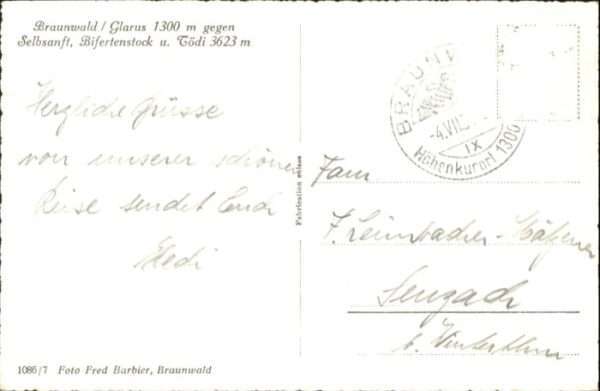 Braunwald / Glarus 1300 m gegen
Selbsanft, Bifertenstock u. Tödi 3623 m
Herzliche Grüsse
von unserer schönen
Reise sendet Euch
Hedi
BRAUNW
-4.VIII.
IX
Höhenkurort 1300
Fabrikation suisse
Fam
F. Leimbacher-
Seuzach
b. Winterthur
1086/7 Foto Fred Barbier, Braunwald